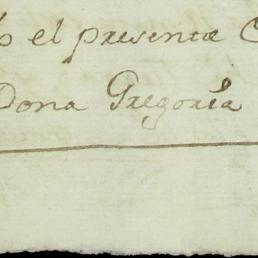 el presente
Dona Gregoria